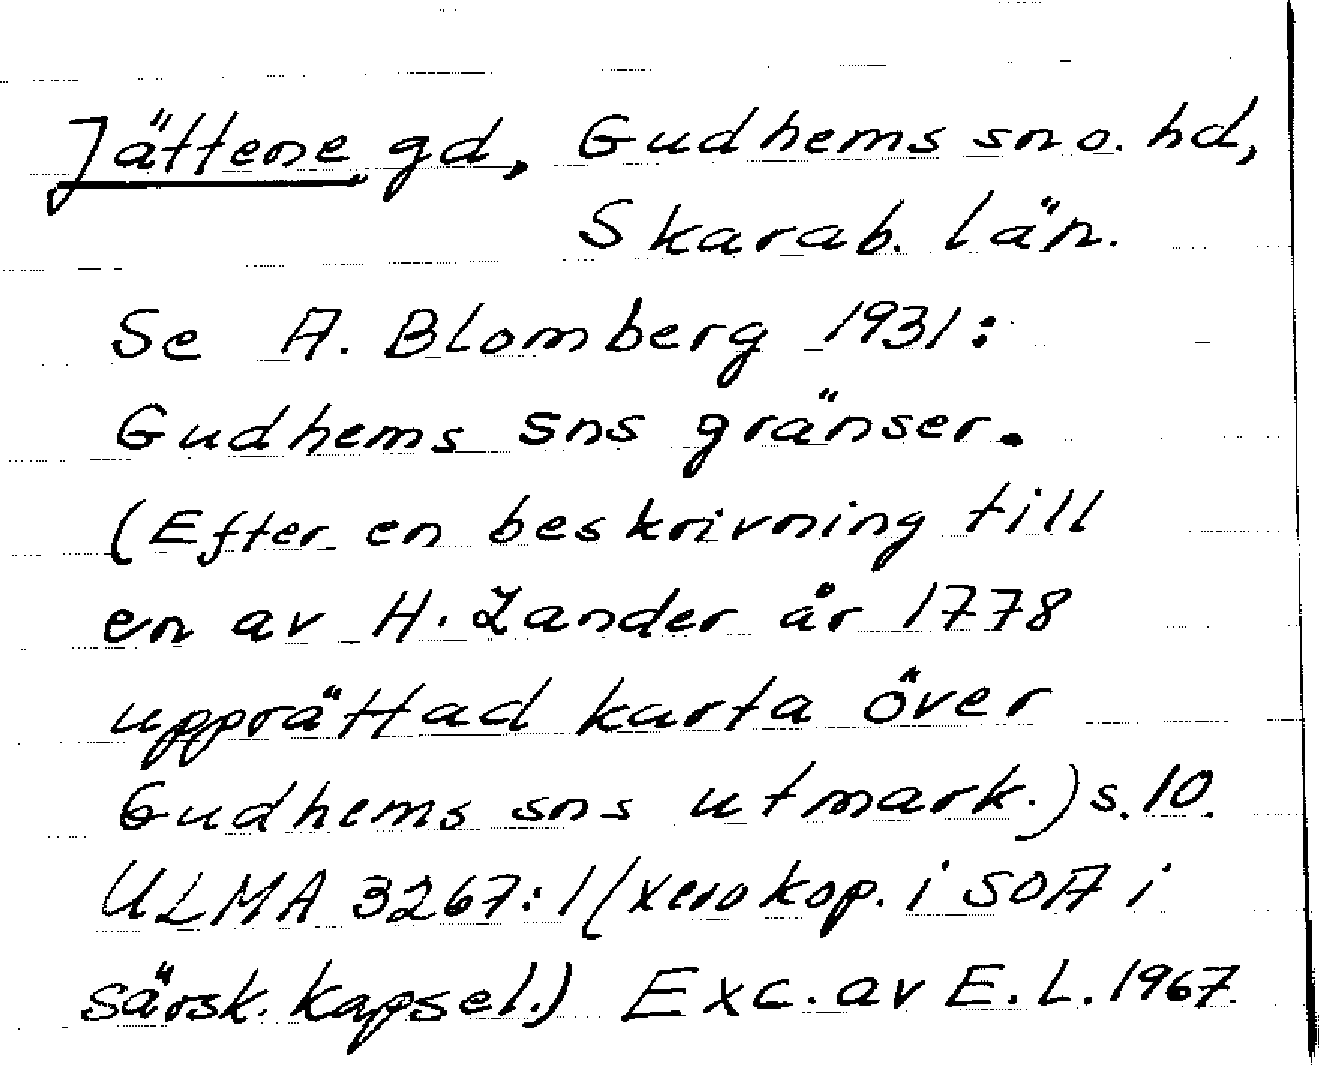 Jättene gd, Gudhems sn o. hd,
Skarab. län.
Se A. Blomberg 1931:
Gudhems sns gränser.
(Efter en beskrivning till
en av H. Zander år 1778
upprättad karta över
Gudhems sns utmark.) s. 10.
ULMA 3267:1 (xerokop. i SOA i
särsk. kapsel.) Exc. av E. L. 1967